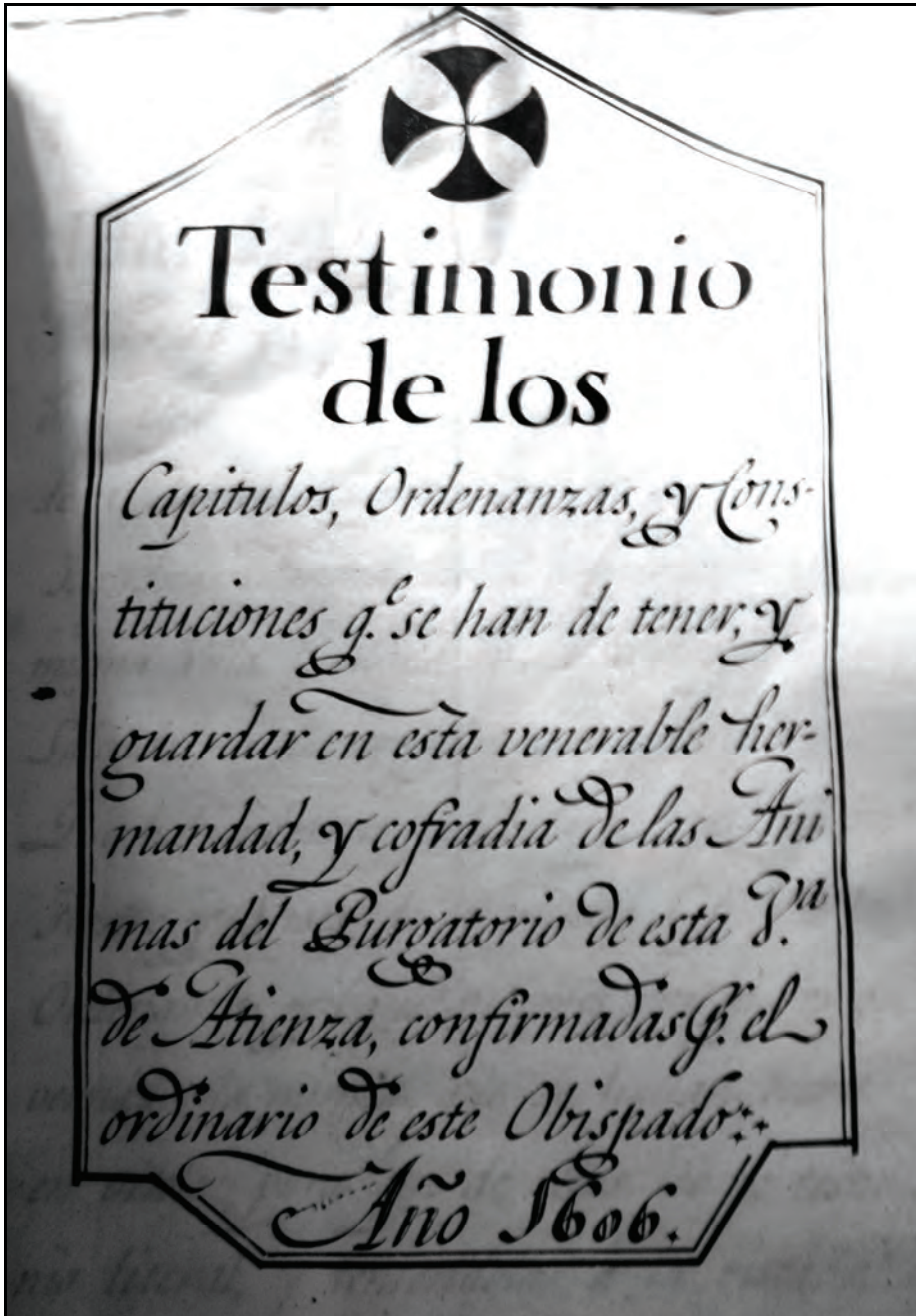 Testimonio
de los
Capitulos, Ordenanzas, y Cons-
tituciones q.e se han de tener, y
guardar en esta venerable her-
mandad, y cofradia de las Ani
mas del Purgatorio de esta V.a
de Atienza, confirmadas P.r el
ordinario de este Obispado:.
Año 1606.